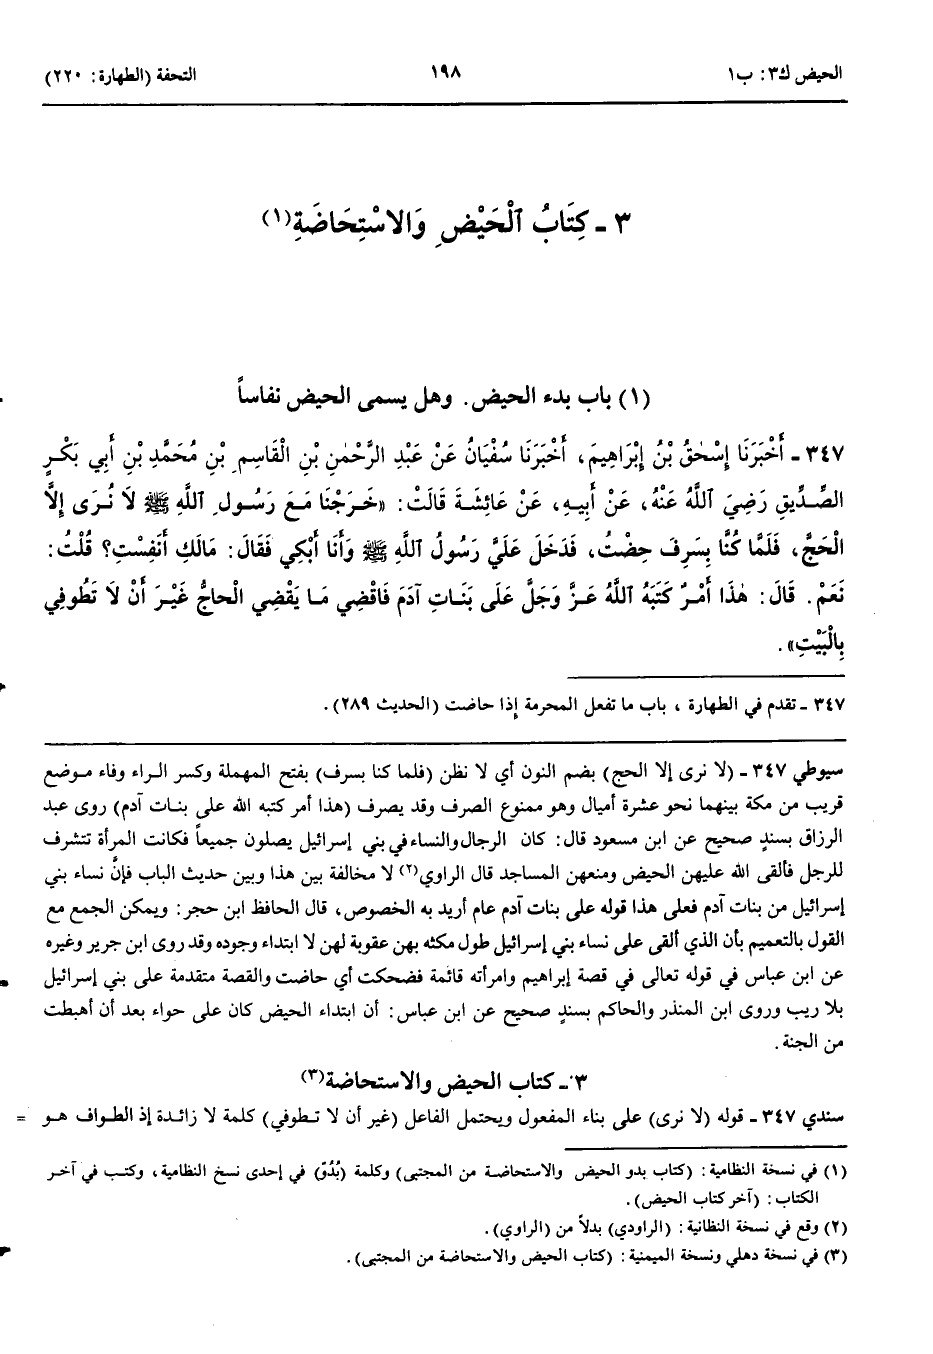 الحيض ك٣: ب١ ١٩٨ التحفة (الطهارة: ٢٢٠)
٣ - كِتَابُ ٱلْحَيْضِ وَالاسْتِحَاضَةِ(١)
(١) باب بدء الحيض. وهل يسمى الحيض نفاساً
٣٤٧ - أَخْبَرَنَا إِسْحٰقُ بْنُ إِبْرَاهِيمَ، أَخْبَرَنَا سُفْيَانُ عَنْ عَبْدِ الرَّحْمٰنِ بْنِ الْقَاسِمِ بْنِ مُحَمَّدِ بْنِ أَبِي بَكْرٍ
الصِّدِّيقِ رَضِيَ ٱللَّهُ عَنْهُ، عَنْ أَبِيهِ، عَنْ عَائِشَةَ قَالَتْ: «خَرَجْنَا مَعَ رَسُولِ ٱللَّهِ ﷺ لَا نُرَى إِلَّا
الْحَجَّ، فَلَمَّا كُنَّا بِسَرِفَ حِضْتُ، فَدَخَلَ عَلَيَّ رَسُولُ ٱللَّهِ ﷺ وَأَنَا أَبْكِي فَقَالَ: مَالَكِ أَنَفِسْتِ؟ قُلْتُ:
نَعَمْ. قَالَ: هٰذَا أَمْرٌ كَتَبَهُ ٱللَّهُ عَزَّ وَجَلَّ عَلَى بَنَاتِ آدَمَ فَاقْضِي مَا يَقْضِي الْحَاجُّ غَيْرَ أَنْ لَا تَطُوفِي
بِالْبَيْتِ».
٣٤٧ - تقدم في الطهارة، باب ما تفعل المحرمة إذا حاضت (الحديث ٢٨٩).
سيوطي ٣٤٧ - (لا نرى إلا الحج) بضم النون أي لا نظن (فلما كنا بسرف) بفتح المهملة وكسر الراء وفاء موضع
قريب من مكة بينهما نحو عشرة أميال وهو ممنوع الصرف وقد يصرف (هذا أمر كتبه الله على بنات آدم) روى عبد
الرزاق بسندٍ صحيح عن ابن مسعود قال: كان الرجال والنساء في بني إسرائيل يصلون جميعاً فكانت المرأة تتشرف
للرجل فألقى الله عليهن الحيض ومنعهن المساجد قال الراوي(٢) لا مخالفة بين هذا وبين حديث الباب فإنَّ نساء بني
إسرائيل من بنات آدم فعلى هذا قوله على بنات آدم عام أريد به الخصوص، قال الحافظ ابن حجر: ويمكن الجمع مع
القول بالتعميم بأن الذي ألقى على نساء بني إسرائيل طول مكثه بهن عقوبة لهن لا ابتداء وجوده وقد روى ابن جرير وغيره
عن ابن عباس في قوله تعالى في قصة إبراهيم وامرأته قائمة فضحكت أي حاضت والقصة متقدمة على بني إسرائيل
بلا ريب وروى ابن المنذر والحاكم بسندٍ صحيح عن ابن عباس: أن ابتداء الحيض كان على حواء بعد أن أهبطت
من الجنة.
٣ - كتاب الحيض والاستحاضة(٣)
سندي ٣٤٧ - قوله (لا نرى) على بناء المفعول ويحتمل الفاعل (غير أن لا تطوفي) كلمة لا زائدة إذ الطواف هو =
(١) في نسخة النظامية: (كتاب بدو الحيض والاستحاضة من المجتبى) وكلمة (بُدُوّ) في إحدى نسخ النظامية، وكتب في آخر
الكتاب: (آخر كتاب الحيض).
(٢) وقع في نسخة النظانية: (الراودي) بدلاً من (الراوي).
(٣) في نسخة دهلي ونسخة الميمنية: (كتاب الحيض والاستحاضة من المجتبى).